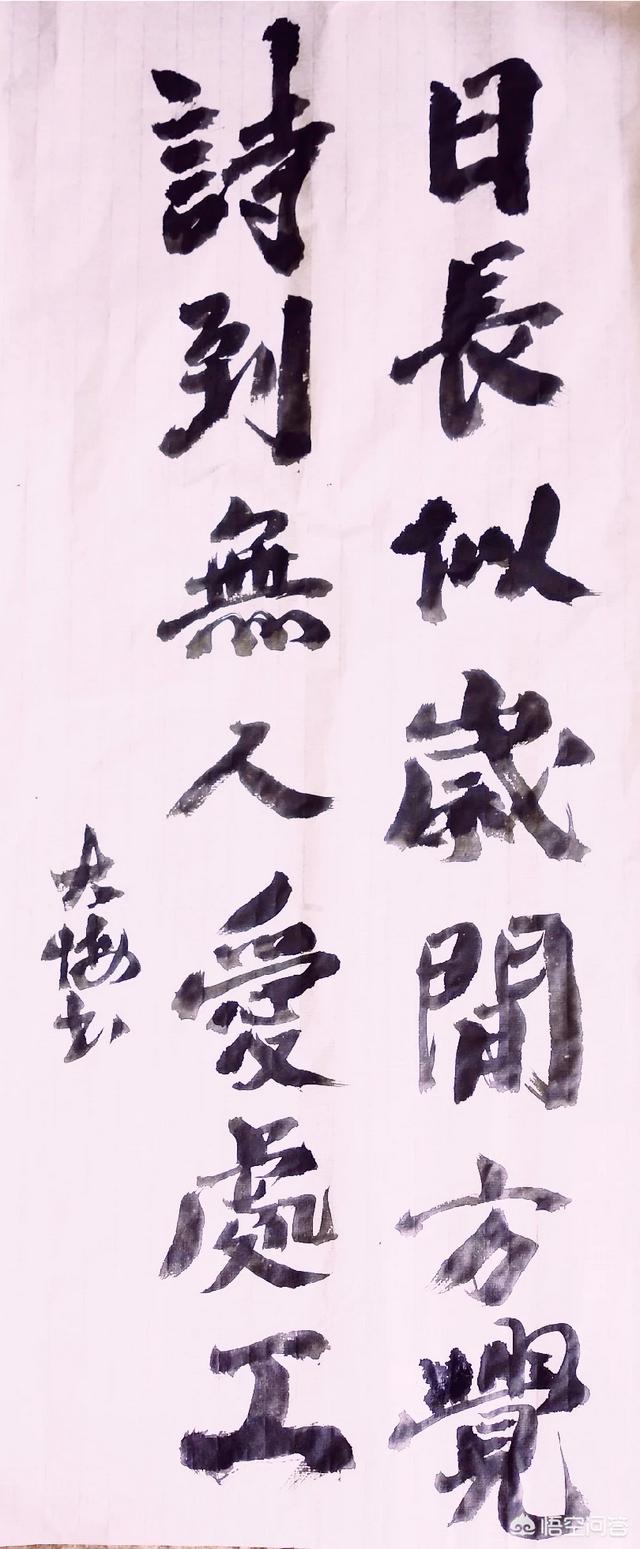 日長似歲閒方覺
詩到無人愛處工
大悔书
悟空问答